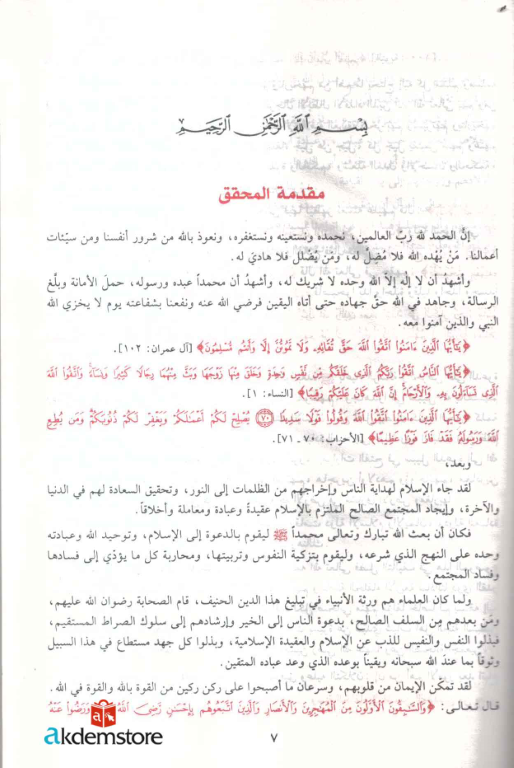 بِسْمِ اللَّهِ الرَّحْمَنِ الرَّحِيمِ
مقدمة المحقق
إنَّ الحمد لله ربِّ العالمين، نحمده ونستعينه ونستغفره، ونعوذ بالله من شرور أنفسنا ومن سيّئات
أعمالنا. مَنْ يَهْده الله فلا مُضِلَّ له، ومَنْ يُضْلل فلا هاديَ له.
وأشهدُ أن لا إله إلا الله وحده لا شريك له، وأشهدُ أن محمداً عبده ورسوله، حملَ الأمانة وبلَّغ
الرسالة، وجاهد في الله حقَّ جهاده حتى أتاه اليقين فرضي الله عنه ونفعنا بشفاعته يوم لا يخزي الله
النبي والذين آمنوا معه.
﴿يَٰٓأَيُّهَا ٱلَّذِينَ ءَامَنُوا ٱتَّقُوا ٱللَّهَ حَقَّ تُقَائِهِۦ وَلَا تَمُوتُنَّ إِلَّا وَأَنتُم مُّسْلِمُونَ﴾ [آل عمران: ١٠٢].
﴿يَٰٓأَيُّهَا ٱلنَّاسُ ٱتَّقُوا رَبَّكُمُ ٱلَّذِى خَلَقَكُم مِّن نَّفْسٍ وَٰحِدَةٍ وَخَلَقَ مِنْهَا زَوْجَهَا وَبَثَّ مِنْهُمَا رِجَالًا كَثِيرًا وَنِسَآءً وَٱتَّقُوا ٱللَّهَ
ٱلَّذِى تَسَآءَلُونَ بِهِۦ وَٱلْأَرْحَامَ إِنَّ ٱللَّهَ كَانَ عَلَيْكُمْ رَقِيبًا﴾ [النساء: ١].
﴿يَٰٓأَيُّهَا ٱلَّذِينَ ءَامَنُوا ٱتَّقُوا ٱللَّهَ وَقُولُوا قَوْلًا سَدِيدًا ٧٠ يُصْلِحْ لَكُمْ أَعْمَٰلَكُمْ وَيَغْفِرْ لَكُمْ ذُنُوبَكُمْ وَمَن يُطِعِ
ٱللَّهَ وَرَسُولَهُۥ فَقَدْ فَازَ فَوْزًا عَظِيمًا﴾ [الأحزاب: ٧٠ ـ ٧١].
وبعد،
لقد جاء الإسلام لهداية الناس وإخراجهم من الظلمات إلى النور، وتحقيق السعادة لهم في الدنيا
والآخرة، وإيجاد المجتمع الصالح الملتزم بالإسلام عقيدةً وعبادة ومعاملة وأخلاقاً.
فكان أن بعث الله تبارك وتعالى محمداً ﷺ ليقوم بالدعوة إلى الإسلام، وتوحيد الله وعبادته
وحده على النهج الذي شرعه، وليقوم بتزكية النفوس وتربيتها، ومحاربة كل ما يؤدّي إلى فسادها
وفساد المجتمع.
ولما كان العلماء هم ورثة الأنبياء في تبليغ هذا الدين الحنيف، قام الصحابة رضوان الله عليهم،
ومَن بعدهم من السلف الصالح، بدعوة الناس إلى الخير وإرشادهم إلى سلوك الصراط المستقيم،
فبذلوا النفس والنفيس للذب عن الإسلام والعقيدة الإسلامية، وبذلوا كل جهد مستطاع في هذا السبيل
وثوقاً بما عندَ الله سبحانه ويقيناً بوعده الذي وعد عباده المتقين.
لقد تمكن الإيمان من قلوبهم، وسرعان ما أصبحوا على ركن ركين من القوة بالله والقوة في الله.
قال تعالى: ﴿وَٱلسَّٰبِقُونَ ٱلْأَوَّلُونَ مِنَ ٱلْمُهَٰجِرِينَ وَٱلْأَنصَارِ وَٱلَّذِينَ ٱتَّبَعُوهُم بِإِحْسَٰنٍ رَّضِىَ ٱللَّهُ عَنْهُمْ وَرَضُوا عَنْهُ
akdemstore
٧